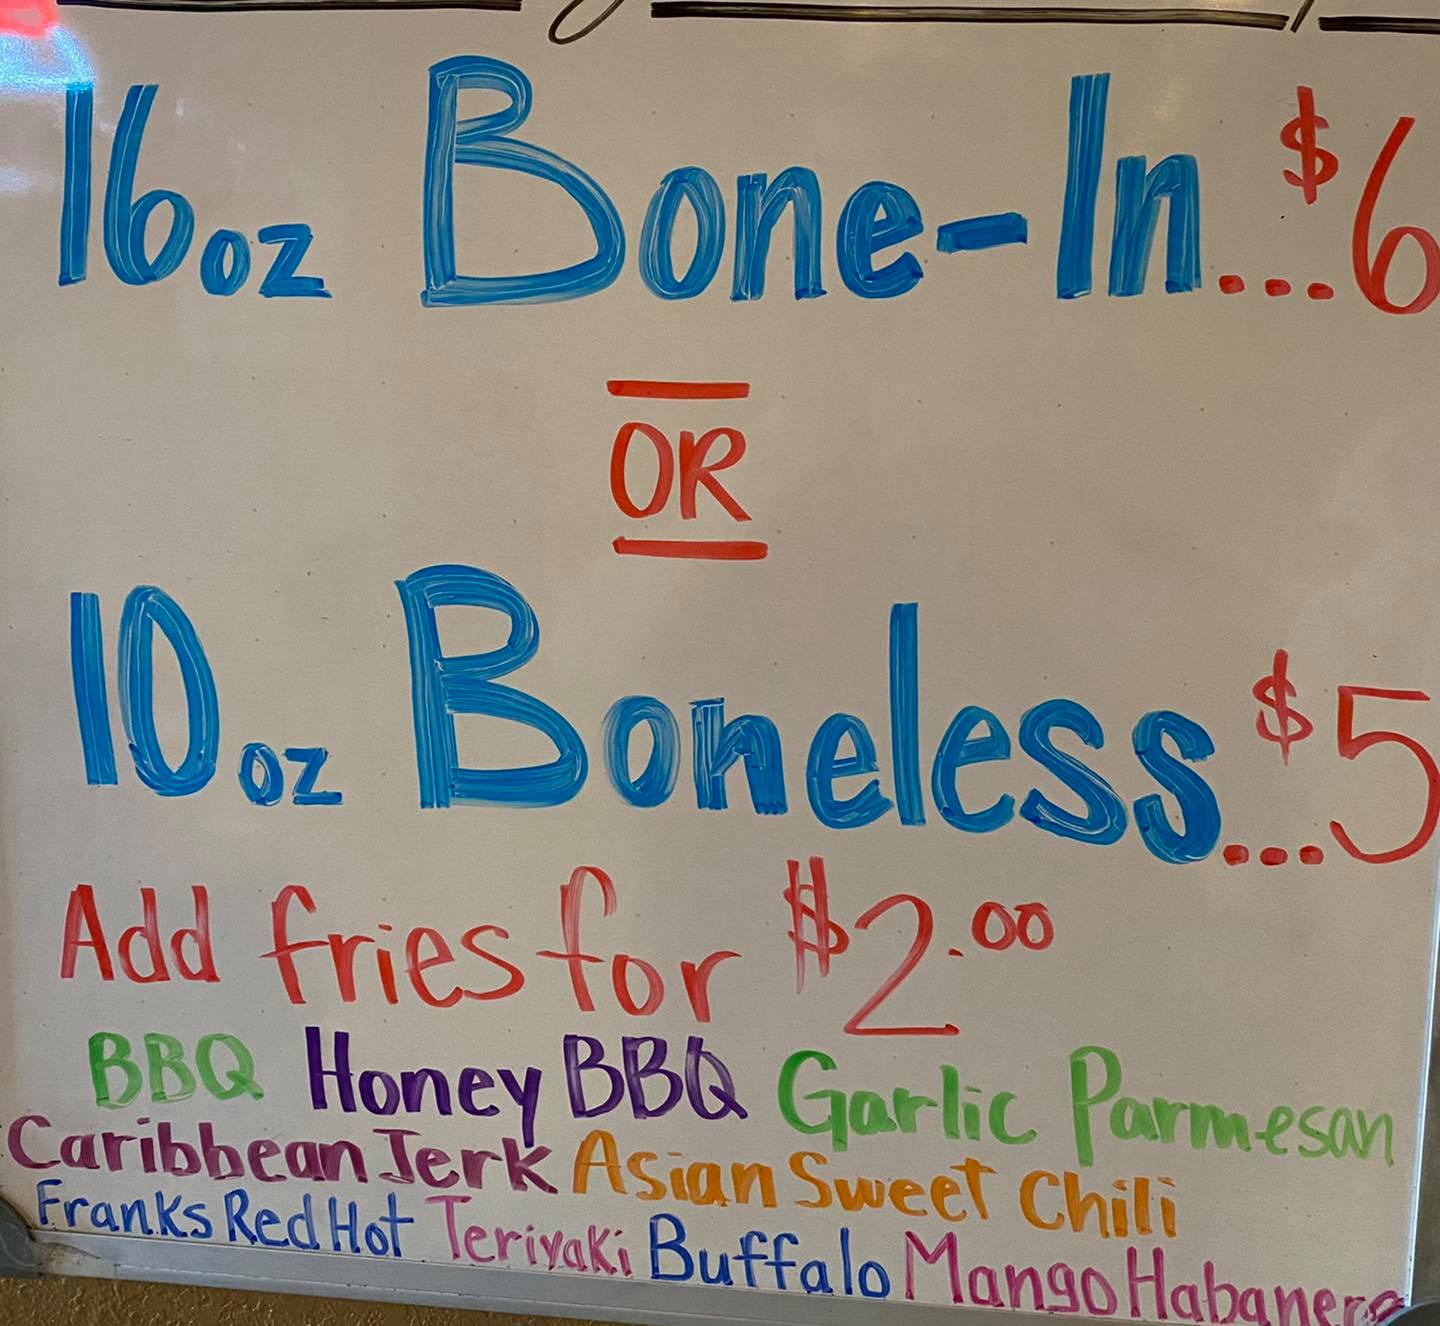 16oz Bone-In...$6
OR
10oz Boneless...$5
Add fries for $2.00
BBQ Honey BBQ Garlic Parmesan
Caribbean Jerk Asian Sweet Chili
Franks Red Hot Teriyaki Buffalo Mango Habanero